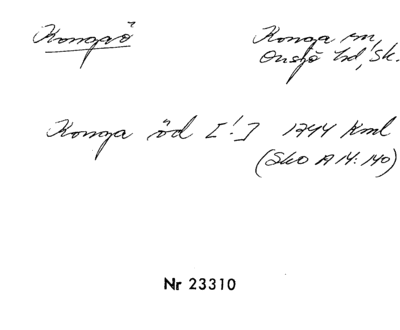 Kongaö
Konga sn,
Onsjö hd, Sk.
Konga öd [!] 1744 Kml
(SkO A 14: 140)
Nr 23310